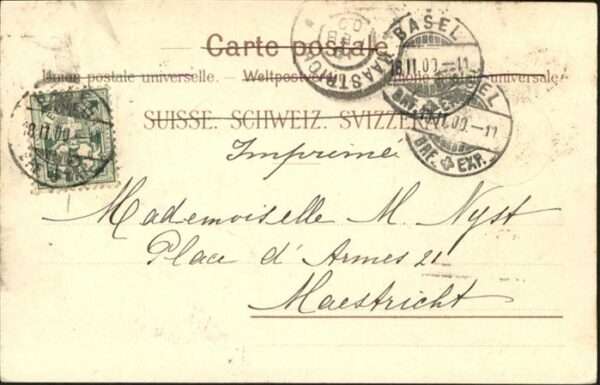 Carte postale.
Union postale universelle. — Weltpostverein. — Unione postale universale.
SUISSE. SCHWEIZ. SVIZZERA.
Imprimé
Mademoiselle M. Nyst
Place d'Armes 21
Maestricht
BASEL
18.II.00.-11
BRF. EXP.
BASEL
18.II.00.-11
BRF. EXP.
18.II.00